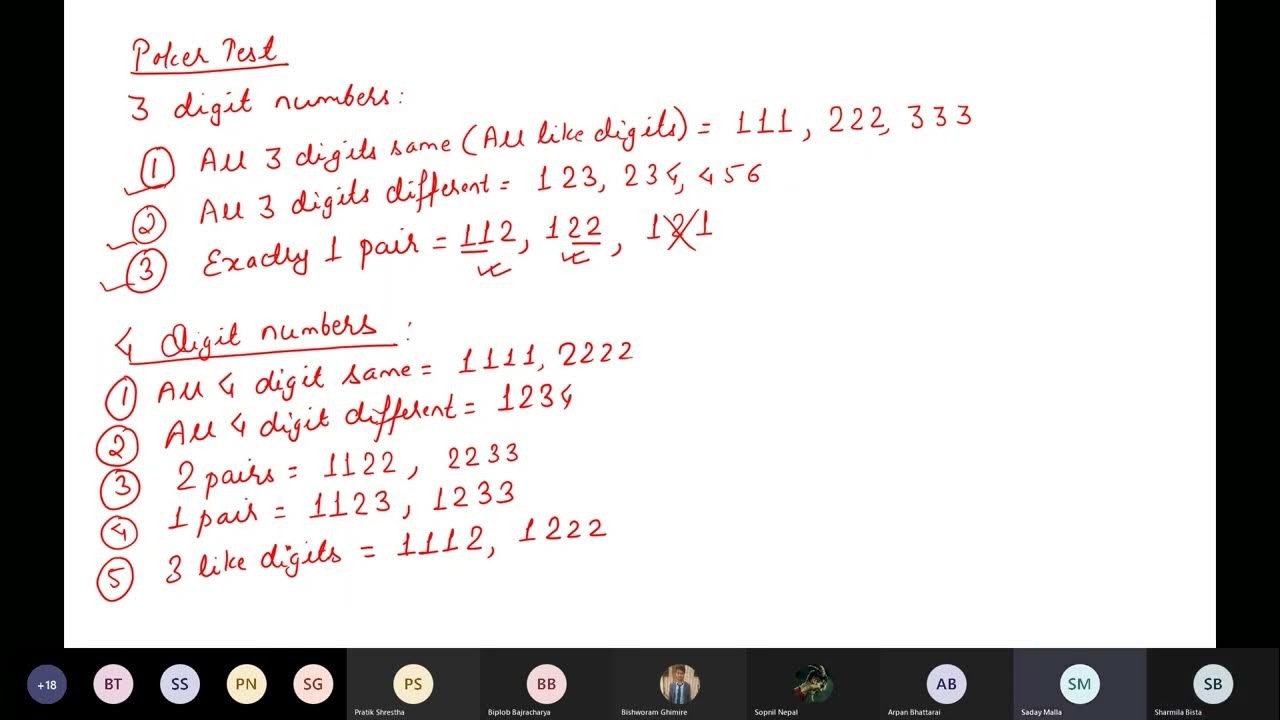 Poker Test
3 digit numbers:
① All 3 digits same (All like digits) = 111, 222, 333
② All 3 digits different = 123, 234, 456
③ Exactly 1 pair = 112, 122, 121
4 Digit numbers:
① All 4 digit same = 1111, 2222
② All 4 digit different = 1234
③ 2 pairs = 1122, 2233
④ 1 pair = 1123, 1233
⑤ 3 like digits = 1112, 1222
+18 BT SS PN SG PS BB AB SM SB
Pratik Shrestha Biplob Bajracharya Bishworam Ghimire Sopnil Nepal Arpan Bhattarai Saday Malla Sharmila Bista